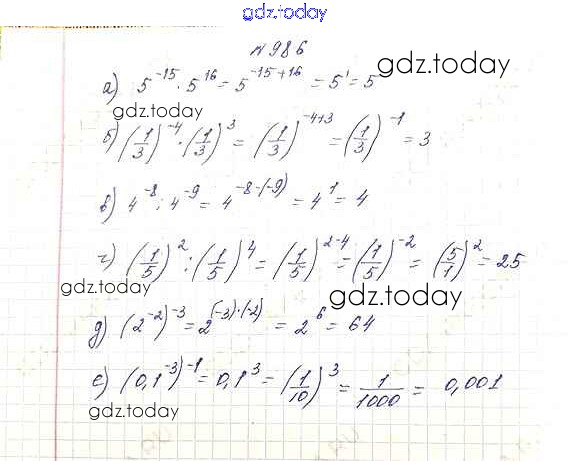 gdz.today
№986
gdz.today
а) 5^-15 · 5^16 = 5^-15+16 = 5^1 = 5
gdz.today
б) (1/3)^-4 · (1/3)^3 = (1/3)^-4+3 = (1/3)^-1 = 3
в) 4^-8 : 4^-9 = 4^-8-(-9) = 4^1 = 4
г) (1/5)^2 : (1/5)^4 = (1/5)^2-4 = (1/5)^-2 = (5/1)^2 = 25
gdz.today
gdz.today
д) (2^-2)^-3 = 2^(-3)·(-2) = 2^6 = 64
е) (0,1^-3)^-1 = 0,1^3 = (1/10)^3 = 1/1000 = 0,001
gdz.today